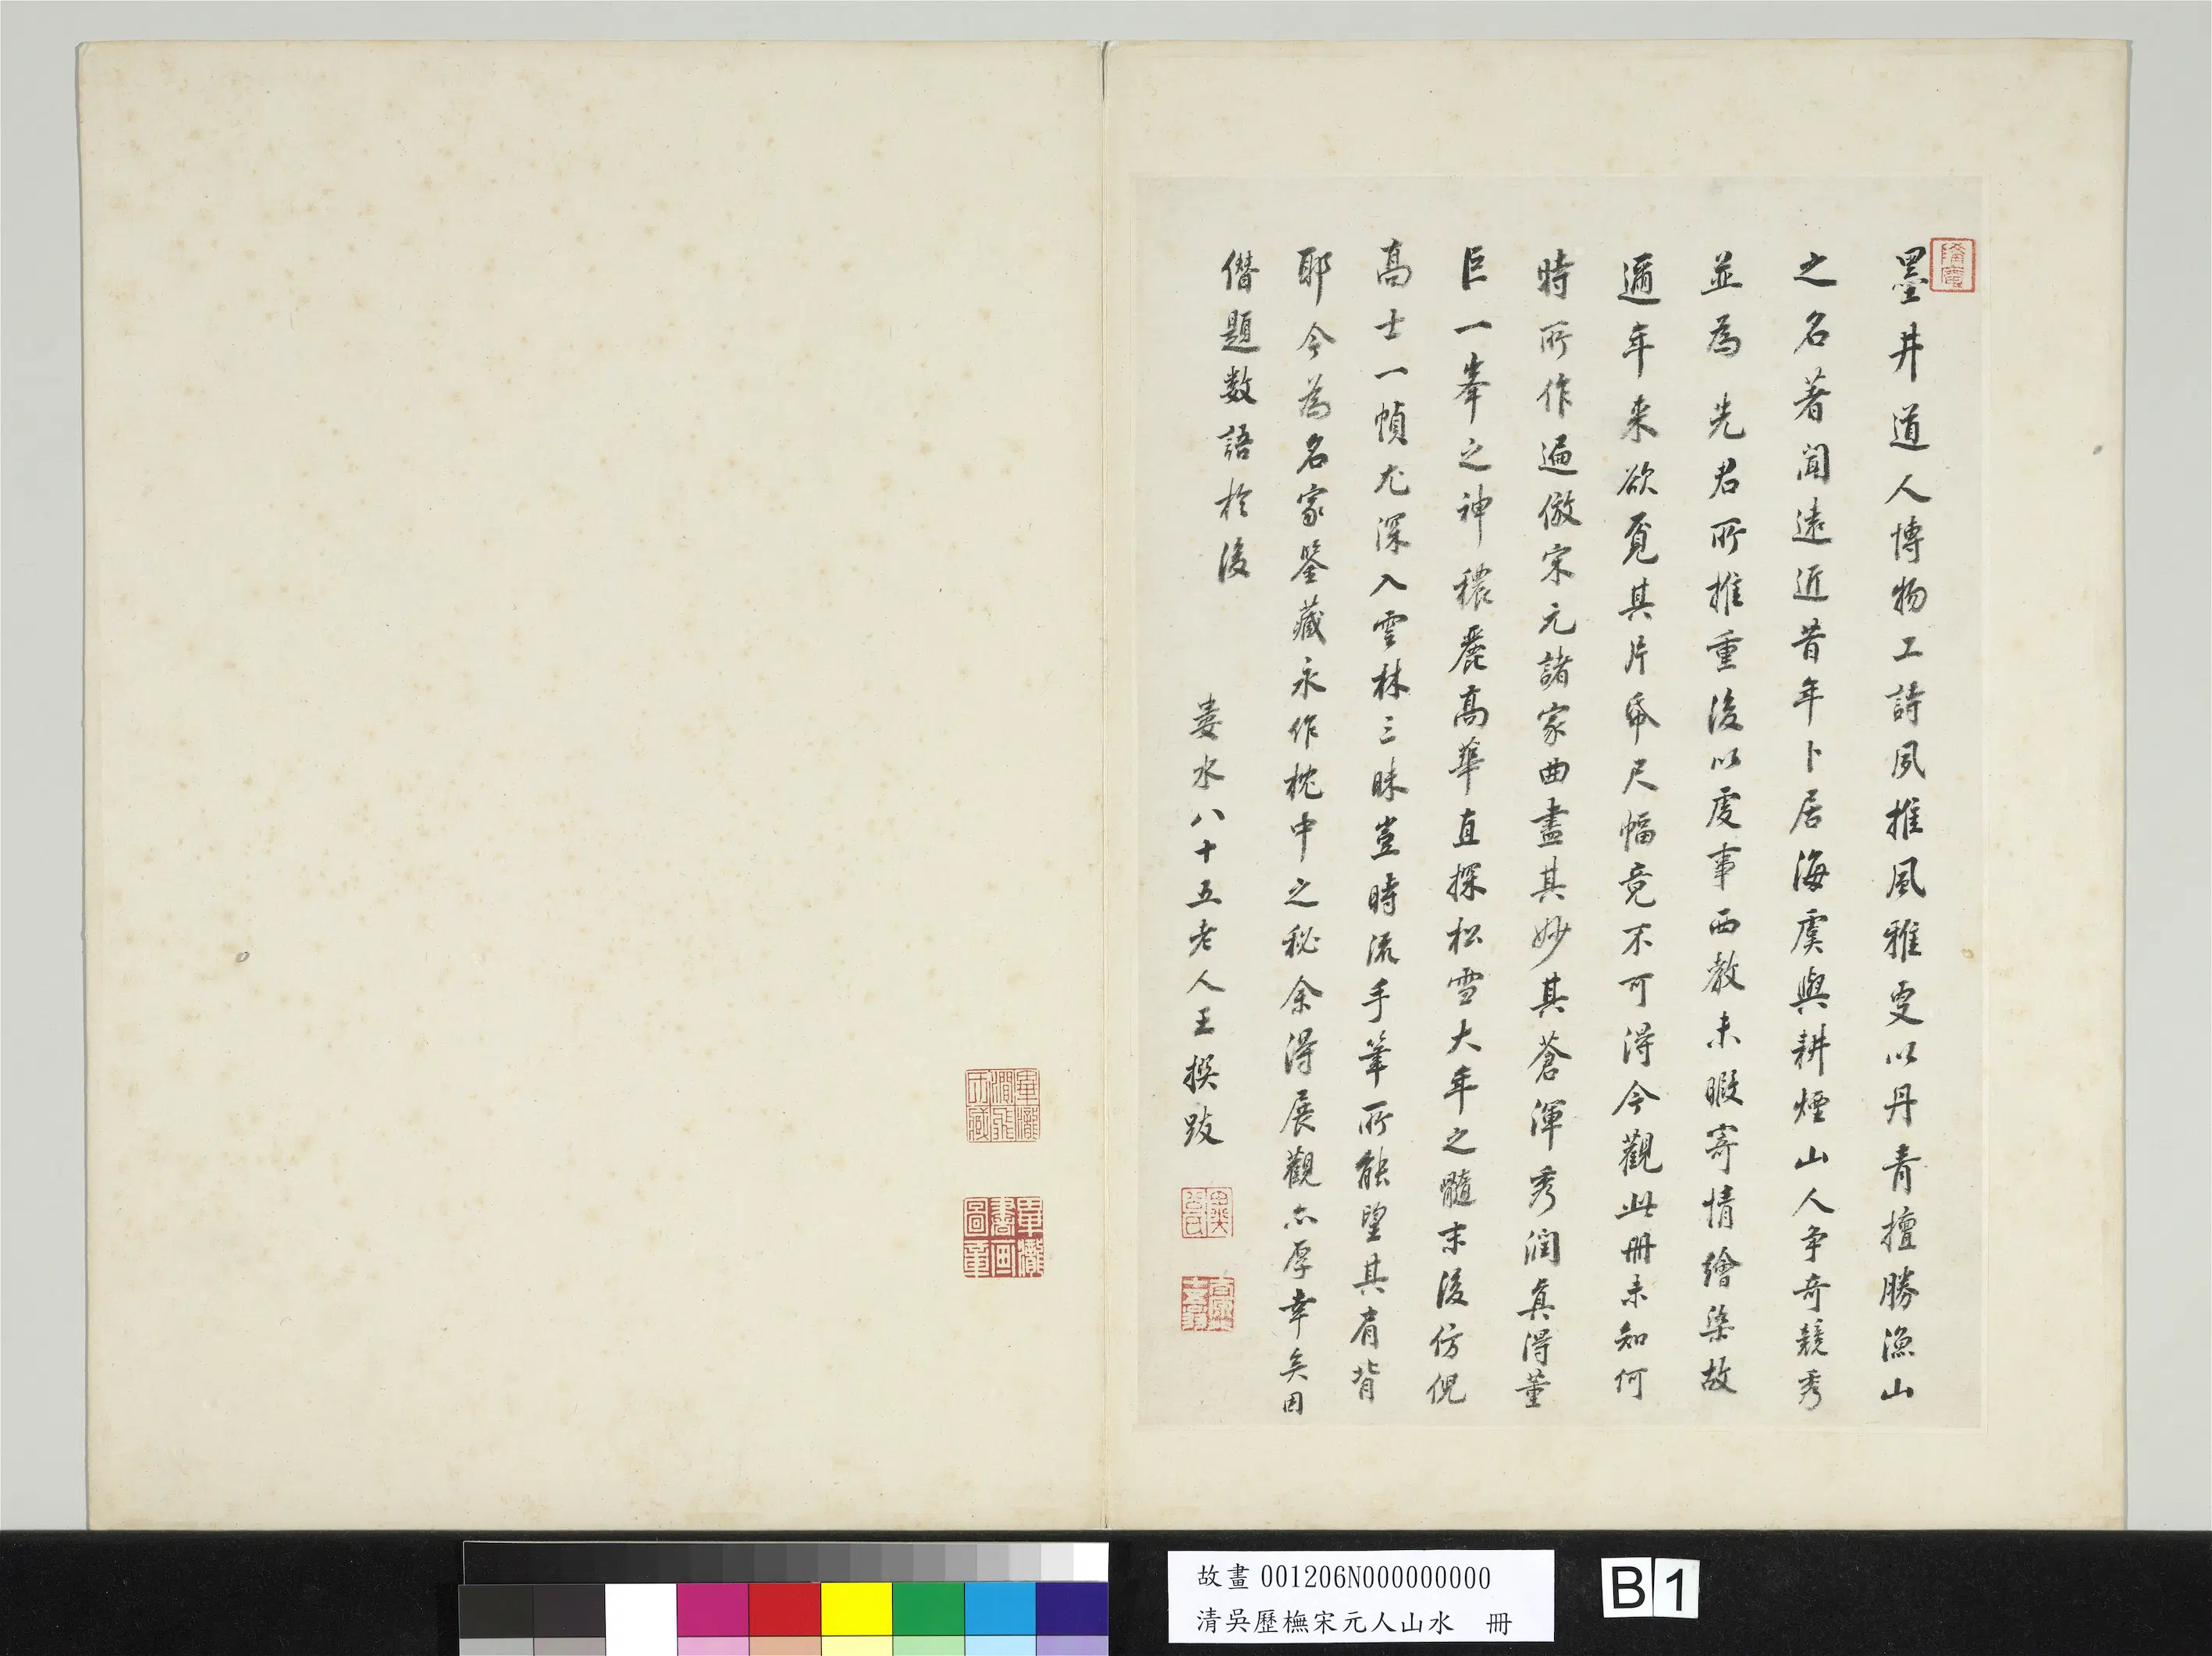 墨井道人博物工詩夙推風雅更以丹青擅勝漁山
之名著聞遠近昔年卜居海虞與耕煙山人爭奇競秀
並為先君所推重後以虔事西教未暇寄情繪染故
邇年来欲覓其片帋尺幅竟不可得今觀此冊未知何
時所作遍倣宋元諸家曲盡其妙其蒼渾秀潤真得董
巨一峯之神穠麗高華直探松雪大年之髓末後仿倪
高士一幀尤深入雲林三昧豈時流手筆所能望其肩背
耶今為名家鑒藏永作枕中之秘余得展觀亦厚幸矣因
僭題数語於後
婁水八十五老人王撰跋
畢瀧澗飛氏藏
畢瀧書画圖章
故畫001206N000000000
清吳歷橅宋元人山水 冊
B1